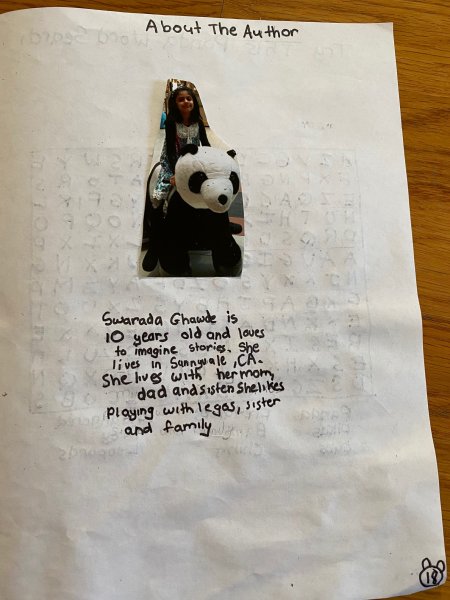 About The Author
Swarada Ghawde is
10 years old and loves
to imagine stories. She
lives in Sunnyvale ,CA.
She lives with her mom,
dad and sister. She likes
playing with legos, sister
and family
18